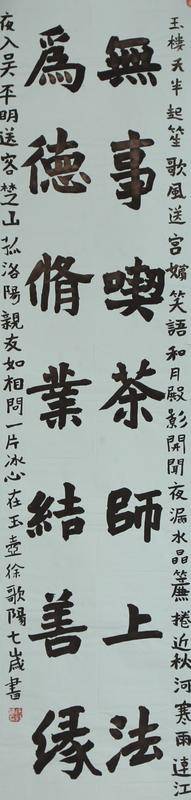 玉樓天半起笙歌風送宮嬪笑語和月殿影開聞夜漏水晶簾捲近秋河寒雨連江
無事喫茶師上法
爲德脩業結善緣
夜入吳平明送客楚山孤洛陽親友如相問一片冰心在玉壺徐歌陽七歲書